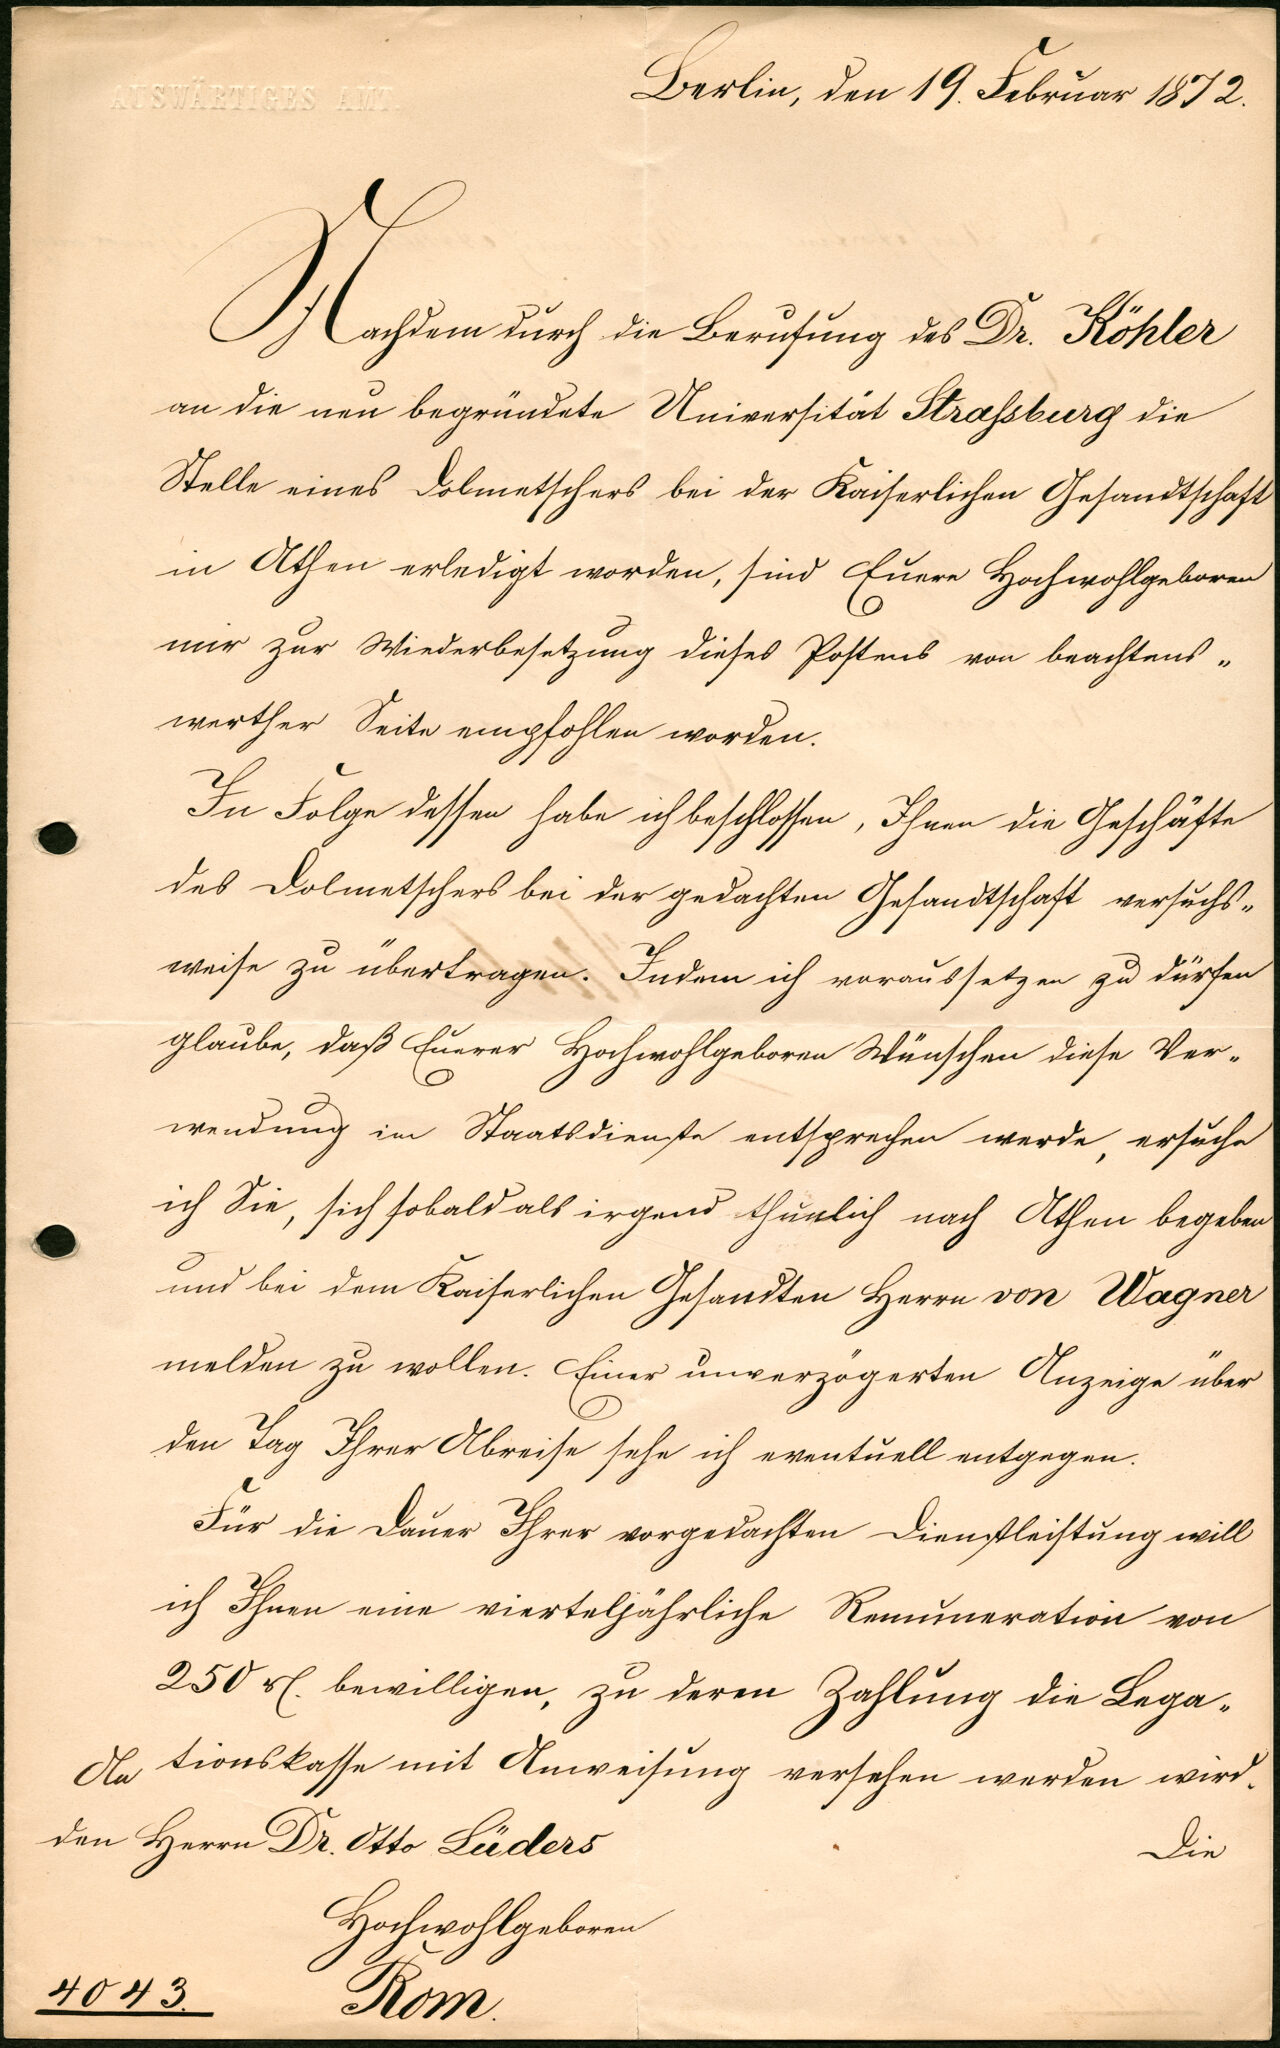 AUSWÄRTIGES AMT
Berlin, den 19. Februar 1872.
Nachdem durch die Berufung des Dr. Köhler
an die neu begründete Universität Strassburg die
Stelle eines Dolmetschers bei der Kaiserlichen Gesandtschaft
in Athen erledigt worden, sind Euere Hochwohlgeboren
mir zur Wiederbesetzung dieses Postens von beachtens-
werther Seite empfohlen worden.
In Folge dessen habe ich beschlossen, Ihnen die Geschäfte
des Dolmetschers bei der gedachten Gesandtschaft versuchs-
weise zu übertragen. Indem ich voraussetzen zu dürfen
glaube, daß Euerer Hochwohlgeboren Wünschen diese Ver-
wendung im Staatsdienste entsprechen werde, ersuche
ich Sie, sich sobald als irgend thunlich nach Athen begeben
und bei dem Kaiserlichen Gesandten Herrn von Wagner
melden zu wollen. Einer unverzögerten Anzeige über
den Tag Ihrer Abreise sehe ich eventuell entgegen.
Für die Dauer Ihrer vorgedachten Dienstleistung will
ich Ihnen eine vierteljährliche Remuneration von
250 rl. bewilligen, zu deren Zahlung die Lega-
tionskasse mit Anweisung versehen werden wird.
An
den Herrn Dr. Otto Lüders
Die
Hochwohlgeboren
4043.
Rom.